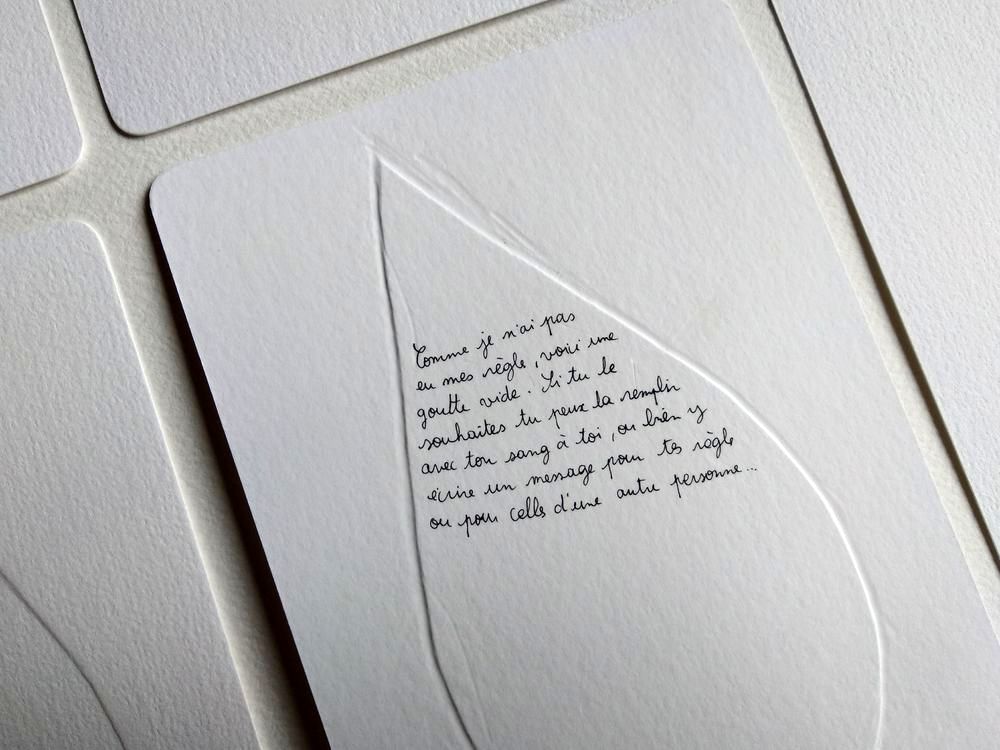 Comme je n'ai pas
eu mes règle, voici une
goutte vide. Si tu le
souhaites tu peux la remplir
avec ton sang à toi, ou bien y
écrire un message pour tes règle
ou pour celles d'une autre personne...